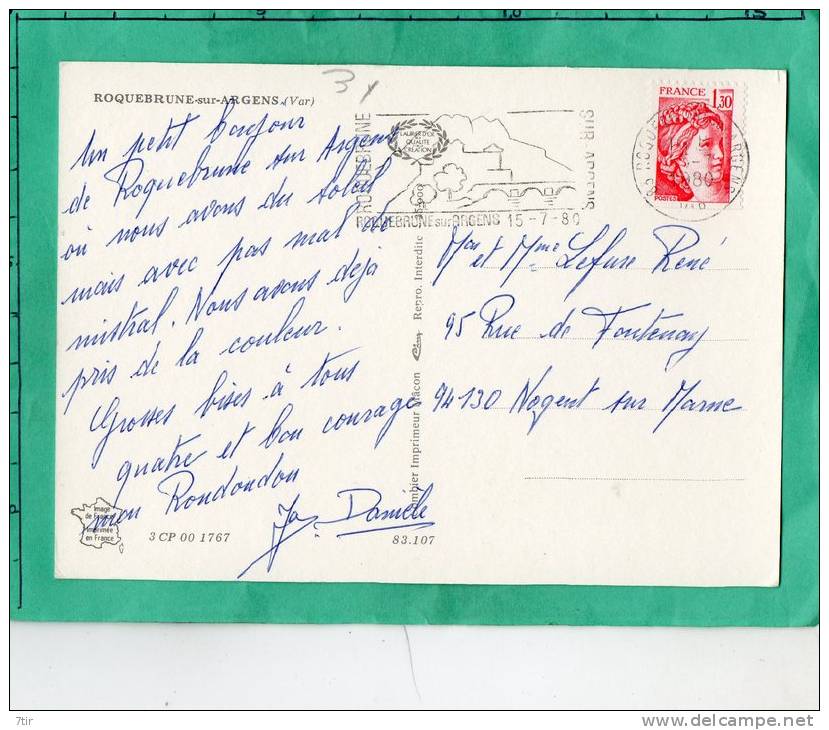 ROQUEBRUNE-sur-ARGENS (Var)
Un petit bonjour
de Roquebrune sur Argens
où nous avons du soleil
mais avec pas mal de
mistral. Nous avons déjà
pris de la couleur.
Grosses bises à tous
quatre et bon courage
mon Rondondon
Danièle
ROQUEBRUNE
LAURIER D'OR
QUALITE
CREATION
SUR ARGENS
ROQUEBRUNE sur ARGENS 15-7-80
FRANCE
1,30
POSTES
ARGENS
1980
Mr et Mme Lefuse René
95 Rue de Fontenay
94130 Nogent sur Marne
Combier Imprimeur Mâcon
Repro. Interdite
Image
de France
Imprimée
en France
3 CP 00 1767
83.107
7tir
www.delcampe.net